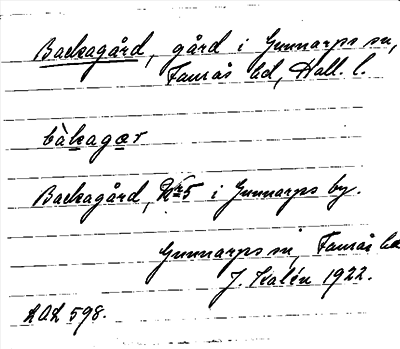 Backagård, gård i Gunnarps sn,
Faurås hd, Hall. l.
bàkagər
Backagård, Nr 5 i Gunnarps by.
Gunnarps sn, Faurås hd
J. Kalén 1922.
LAL 598.